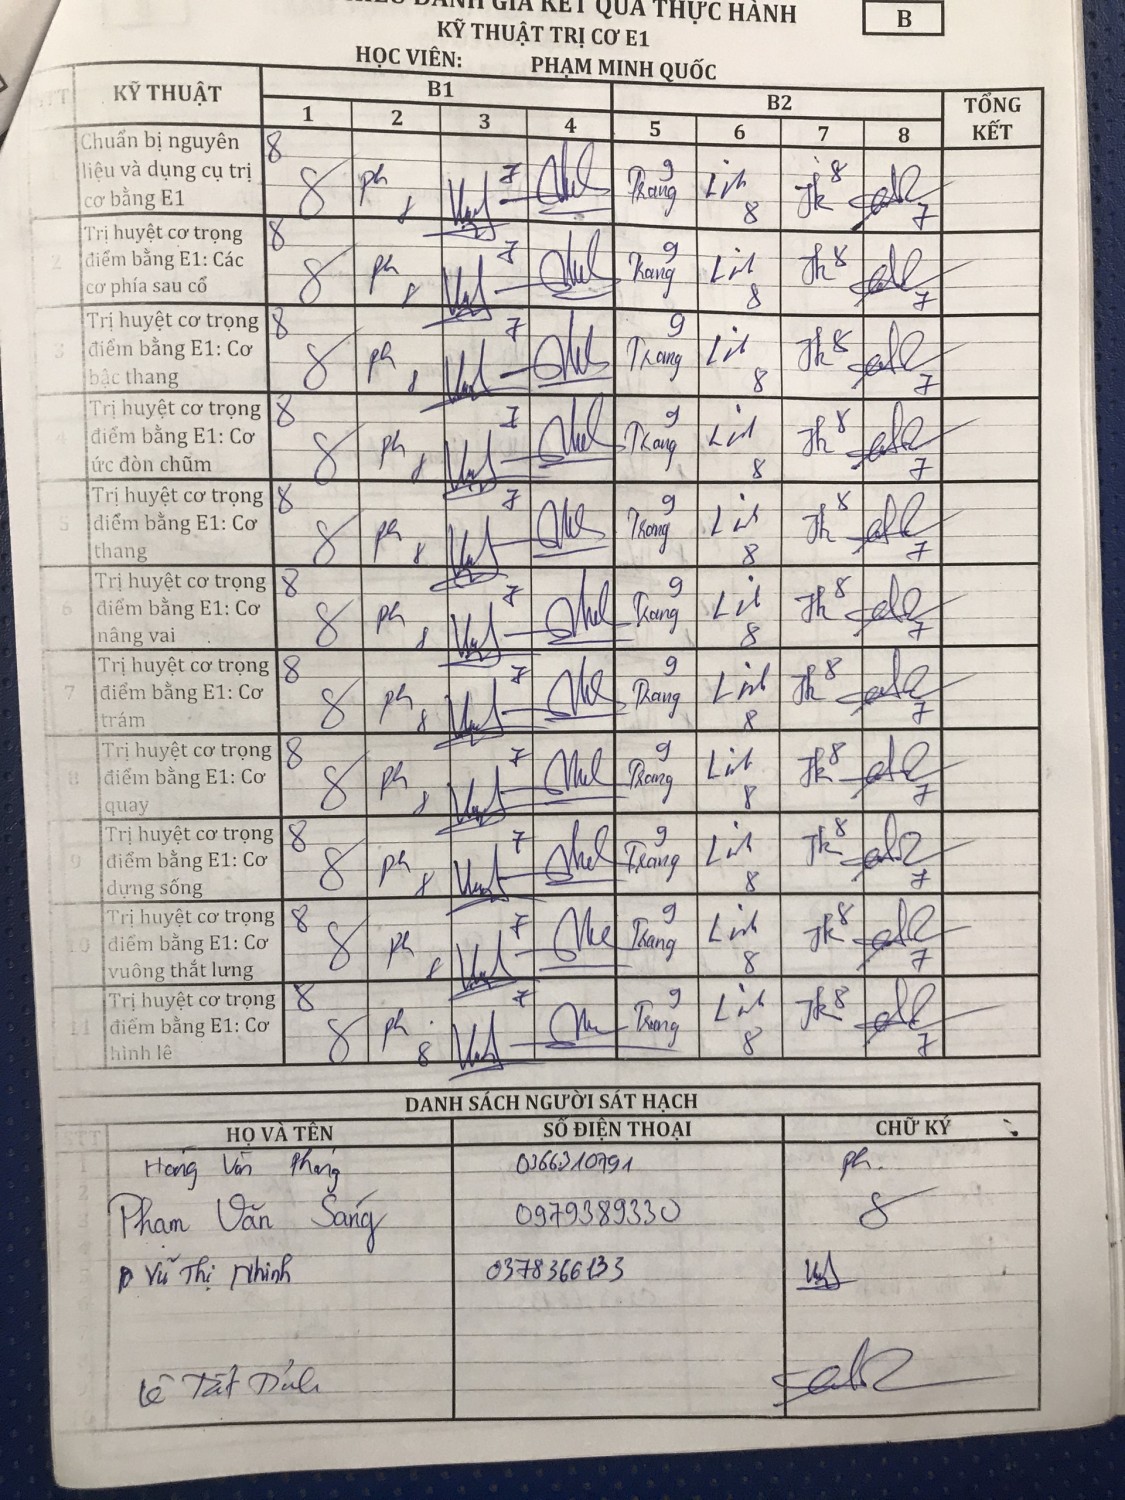 ĐÁNH GIÁ KẾT QUẢ THỰC HÀNH
B
KỸ THUẬT TRỊ CƠ E1
HỌC VIÊN: PHẠM MINH QUỐC
STT KỸ THUẬT B1 B2 TỔNG KẾT
1 2 3 4 5 6 7 8
Chuẩn bị nguyên
liệu và dụng cụ trị
cơ bằng E1
8 8 ph 8 7 Trang 9 Linh 8 8 7
2 Trị huyệt cơ trọng
điểm bằng E1: Các
cơ phía sau cổ
8 8 ph 8 7 Trang 9 Linh 8 8 7
3 Trị huyệt cơ trọng
điểm bằng E1: Cơ
bậc thang
8 8 ph 8 7 Trang 9 Linh 8 8 7
4 Trị huyệt cơ trọng
điểm bằng E1: Cơ
ức đòn chũm
8 8 ph 8 7 Trang 9 Linh 8 8 7
5 Trị huyệt cơ trọng
điểm bằng E1: Cơ
thang
8 8 ph 8 7 Trang 9 Linh 8 8 7
6 Trị huyệt cơ trọng
điểm bằng E1: Cơ
nâng vai
8 8 ph 8 7 Trang 9 Linh 8 8 7
7 Trị huyệt cơ trọng
điểm bằng E1: Cơ
trám
8 8 ph 8 7 Trang 9 Linh 8 8 7
8 Trị huyệt cơ trọng
điểm bằng E1: Cơ
quay
8 8 ph 8 7 Trang 9 Linh 8 8 7
9 Trị huyệt cơ trọng
điểm bằng E1: Cơ
dựng sống
8 8 ph 8 7 Trang 9 Linh 8 8 7
10 Trị huyệt cơ trọng
điểm bằng E1: Cơ
vuông thắt lưng
8 8 ph 8 7 Trang 9 Linh 8 8 7
11 Trị huyệt cơ trọng
điểm bằng E1: Cơ
hình lê
8 8 ph 8 7 Trang 9 Linh 8 8 7
DANH SÁCH NGƯỜI SÁT HẠCH
STT HỌ VÀ TÊN SỐ ĐIỆN THOẠI CHỮ KÝ
Văn 0366310791 ph.
Phạm Văn Sáng 0979389330
Vũ Thị Nhinh 0378366133
Lê Tất